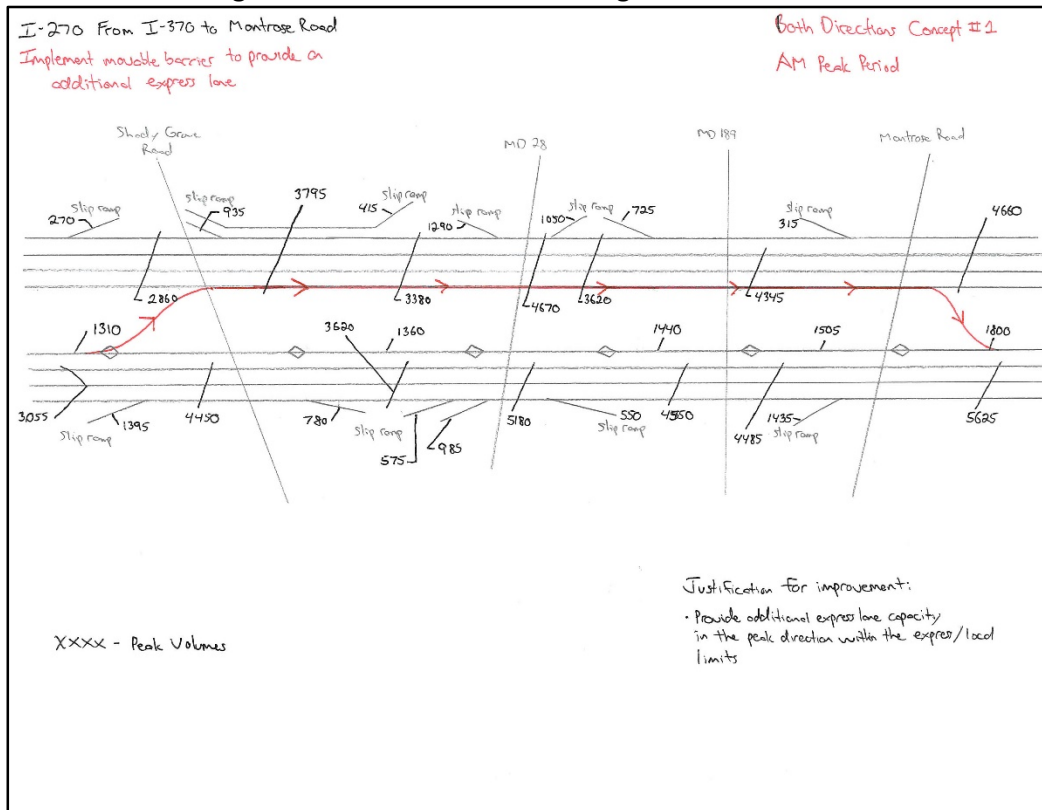 I-270 From I-370 to Montrose Road
Implement movable barrier to provide an
additional express lane
Both Directions Concept #1
AM Peak Period
Shady Grove
Road
MD 28
MD 189
Montrose Road
270
slip ramp
slip ramp
935
3795
415
slip ramp
1290
slip ramp
1050
slip ramp
725
315
slip ramp
4660
2860
3380
4670
3620
4345
1310
3620
1360
1440
1505
1800
3055
slip ramp
1395
4450
780
slip ramp
575
985
5180
550
slip ramp
4550
4485
1435
slip ramp
5625
XXXX - Peak Volumes
Justification for improvement:
· Provide additional express lane capacity
in the peak direction within the expres/local
limits